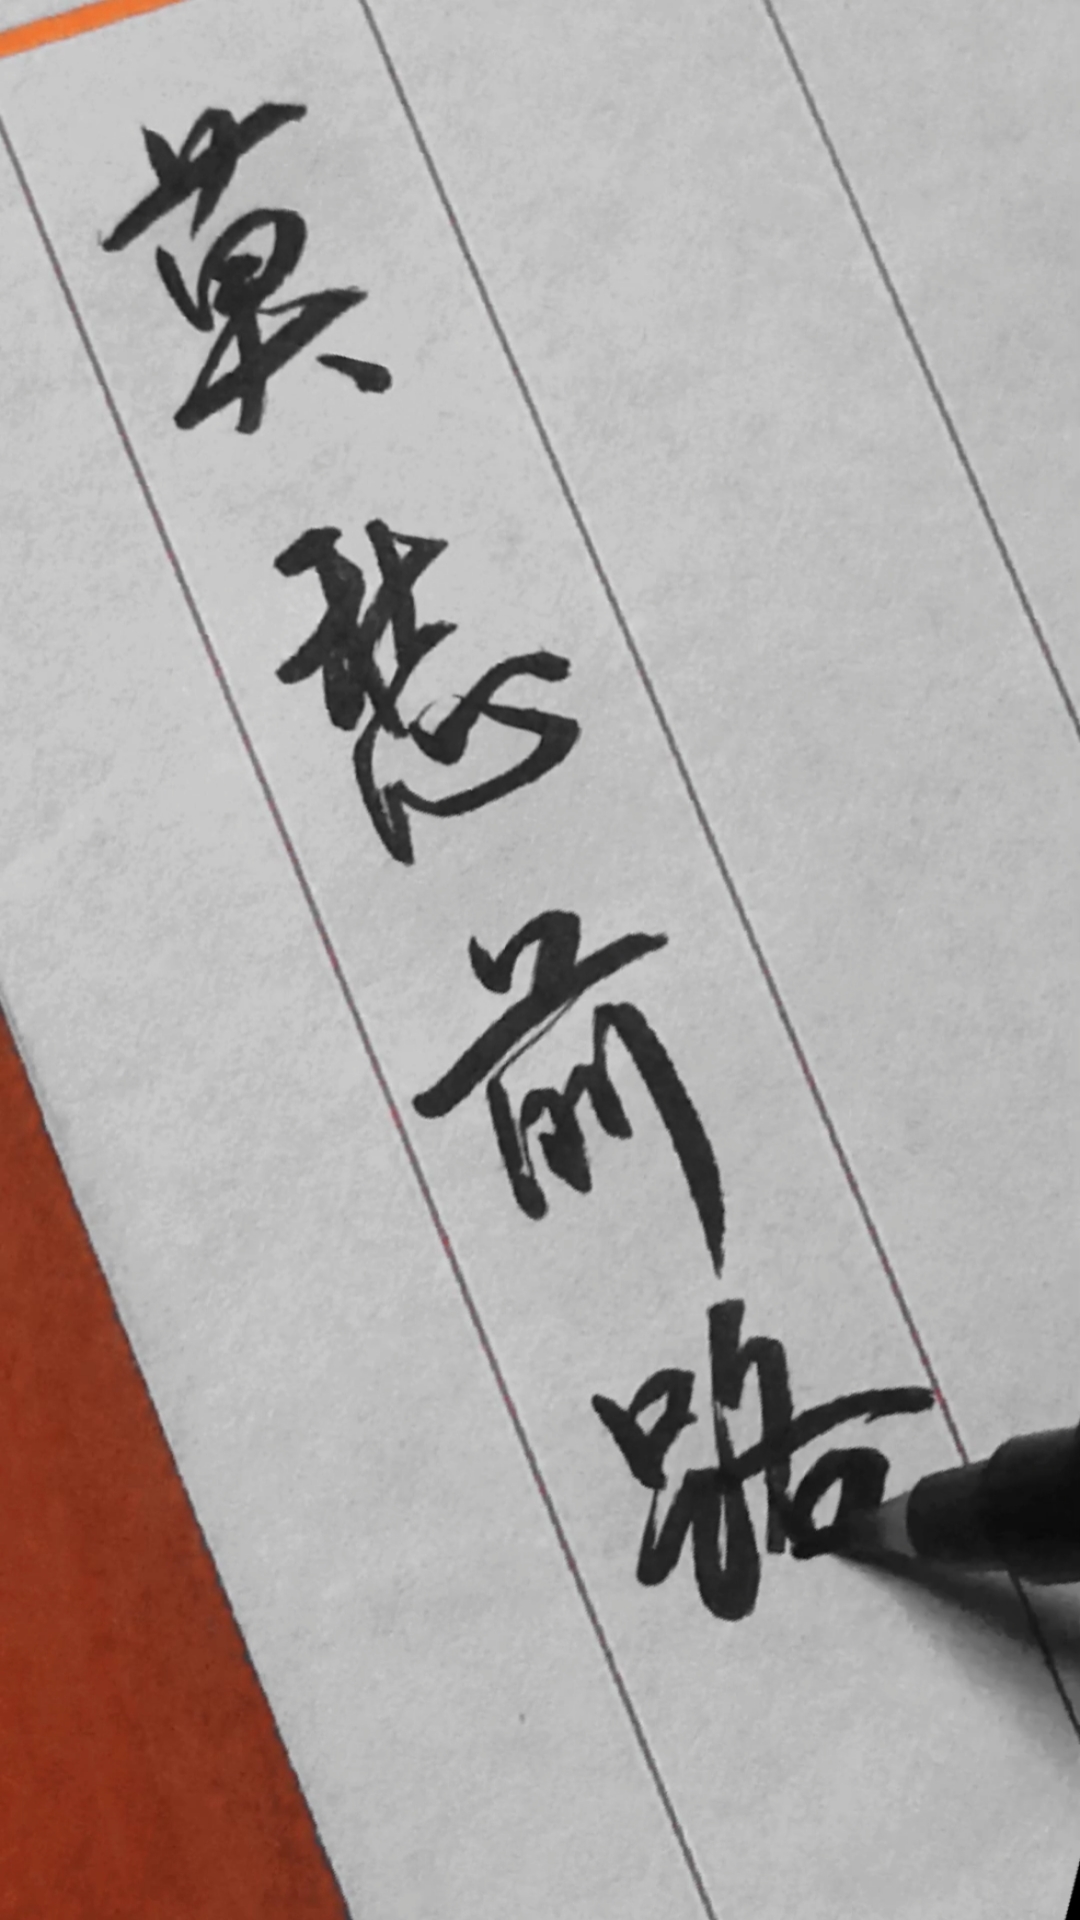 莫愁前路